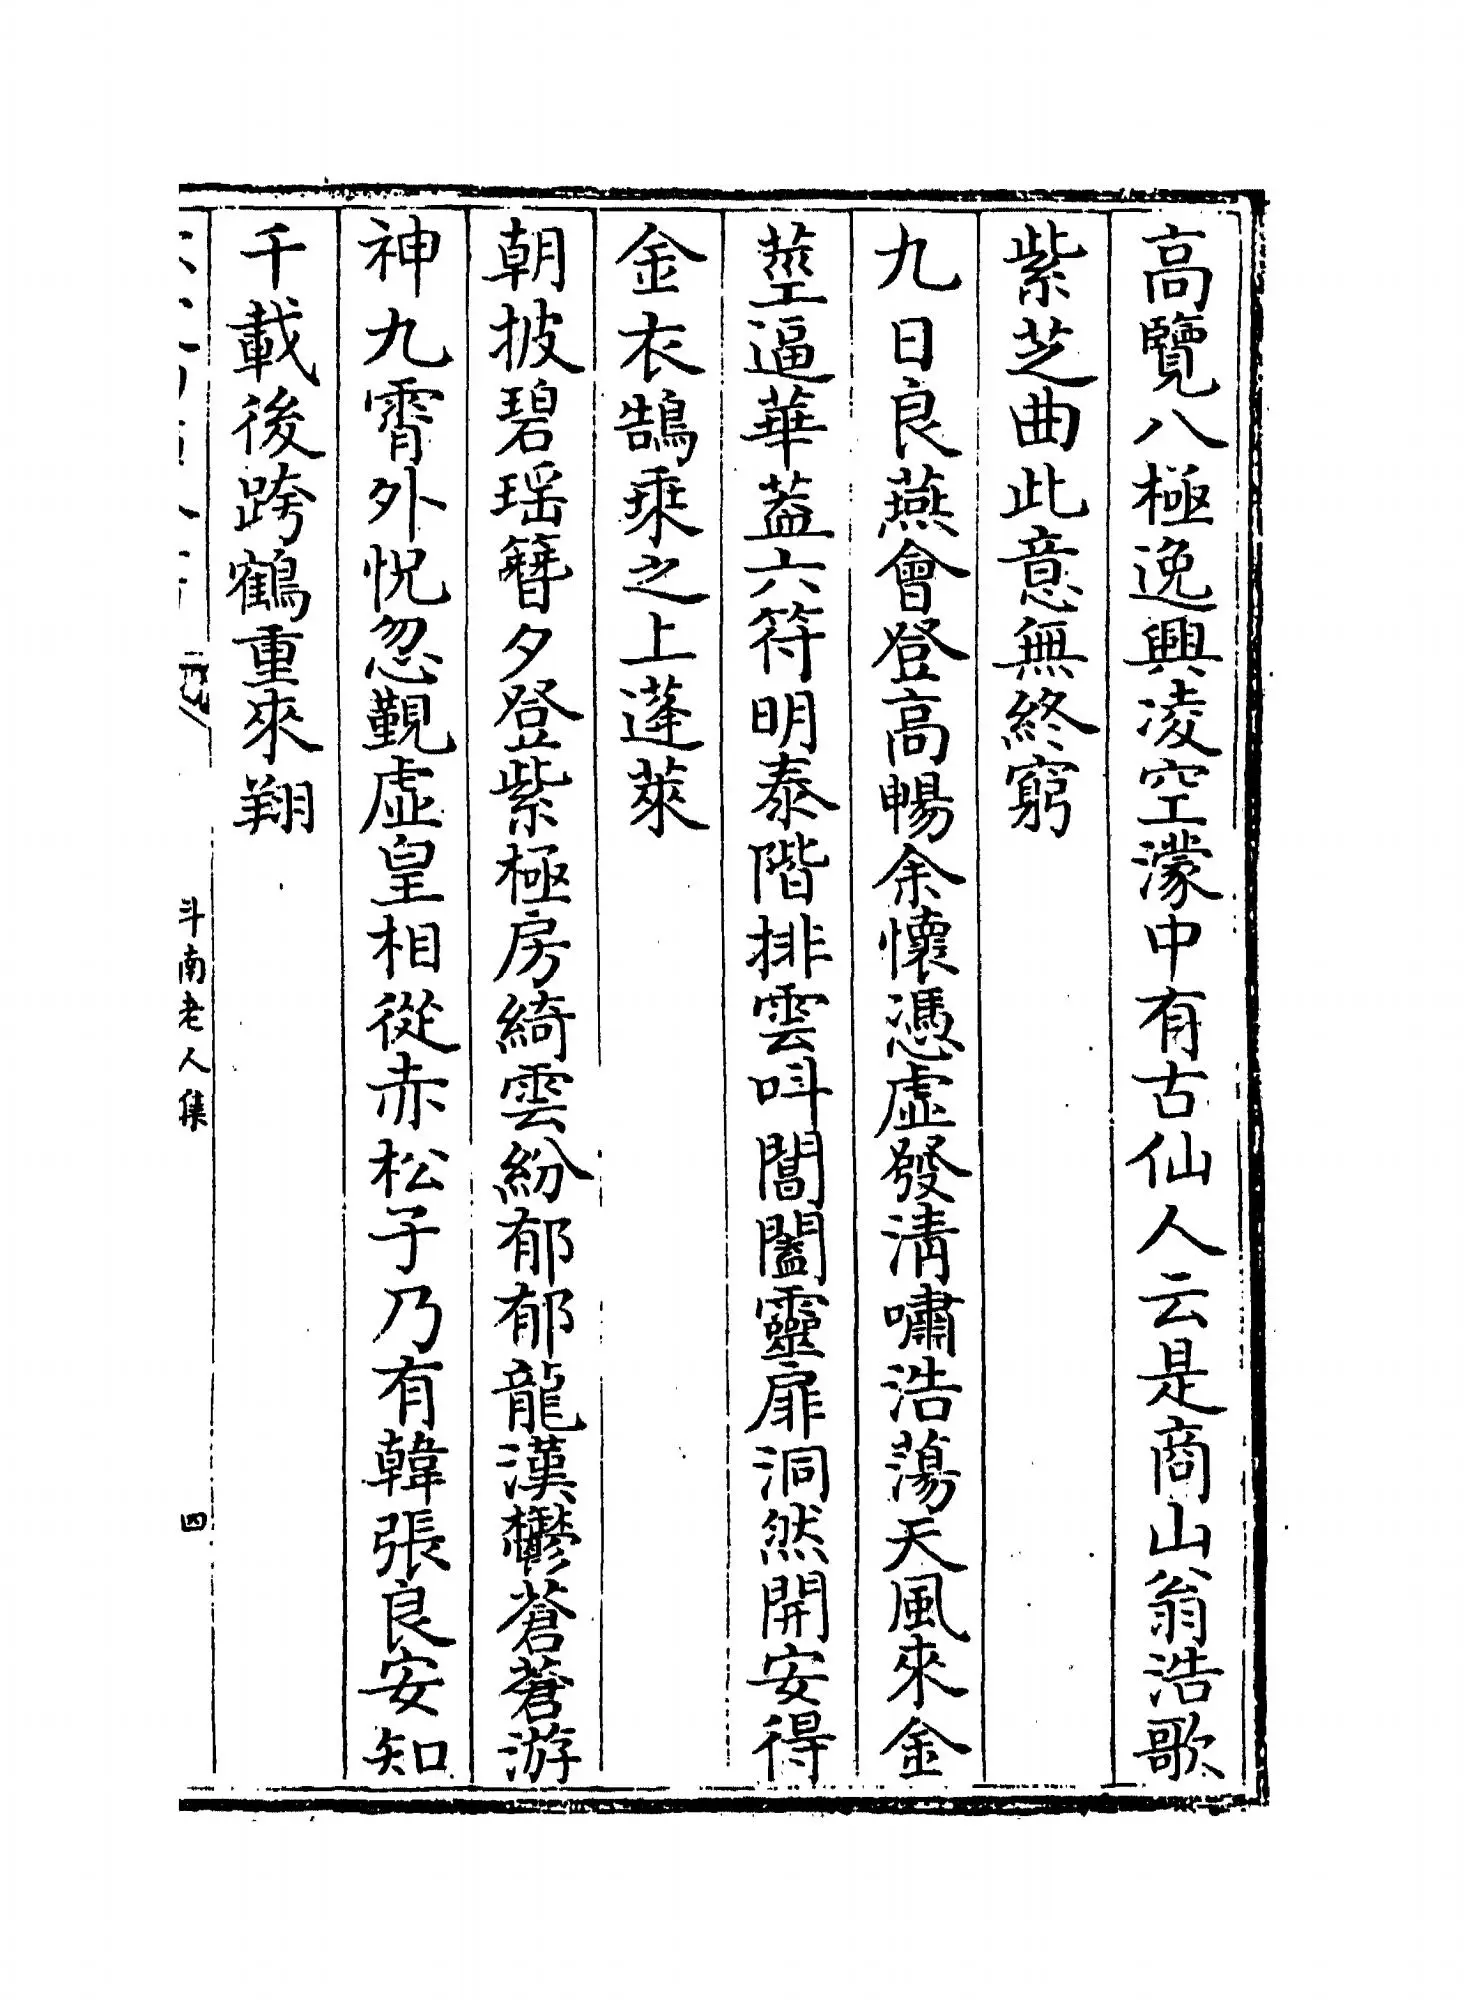 高覽八極逸興凌空濛中有古仙人云是商山翁浩歌
紫芝曲此意無終窮
九日良燕會登高暢余懷憑虛發清嘯浩蕩天風來金
莖逼華葢六符明泰階排雲呌閶闔靈扉洞然開安得
金衣鵠乘之上蓬萊
朝披碧瑶簪夕登紫極房綺雲紛郁郁龍漢鬱蒼蒼游
神九霄外怳忽覲虛皇相從赤松子乃有韓張良安知
千載後跨鶴重來翔
斗南老人集
四